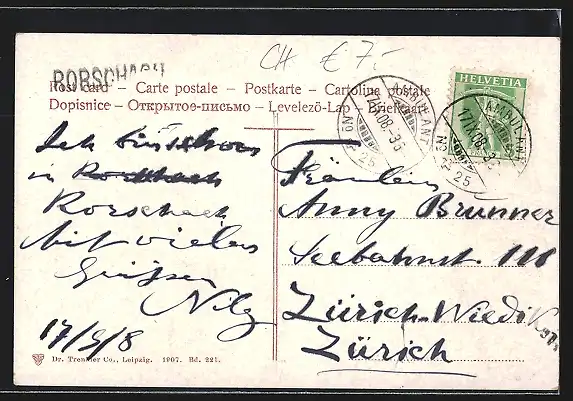 CH € 7.-
RORSCHACH
Post card – Carte postale – Postkarte – Cartolina postale
Dopisnice – Открытое письмо – Levelező-Lap – Briefkaart
HELVETIA
AMBULANT
17.IX.08.-3
No 25
AMBULANT
17.IX.08.-3
No 25
Ich bin schon
in Rorschach
Rorschach
Mit vielen
Grüssen
17/9/8
Fräulein
Anny Brunner
Seebahnst. 111
Zürich-Wiedikon
Zürich
Dr. Trenkler Co., Leipzig. 1907. Bd. 221.